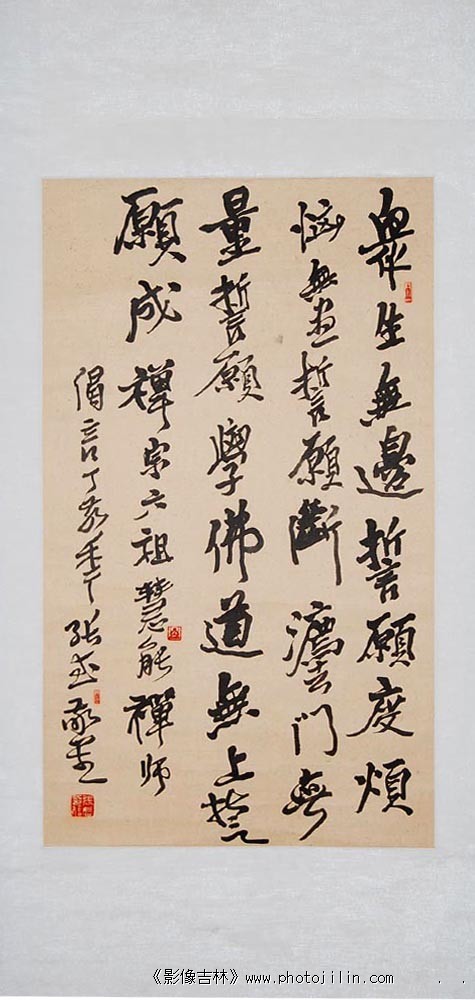 衆生無邊誓願度煩
惱無盡誓願斷灋門無
量誓願學佛道無上誓
願成 禪宗六祖慧能禪師
偈言丁亥年張敬書
《影像吉林》www.photojilin.com